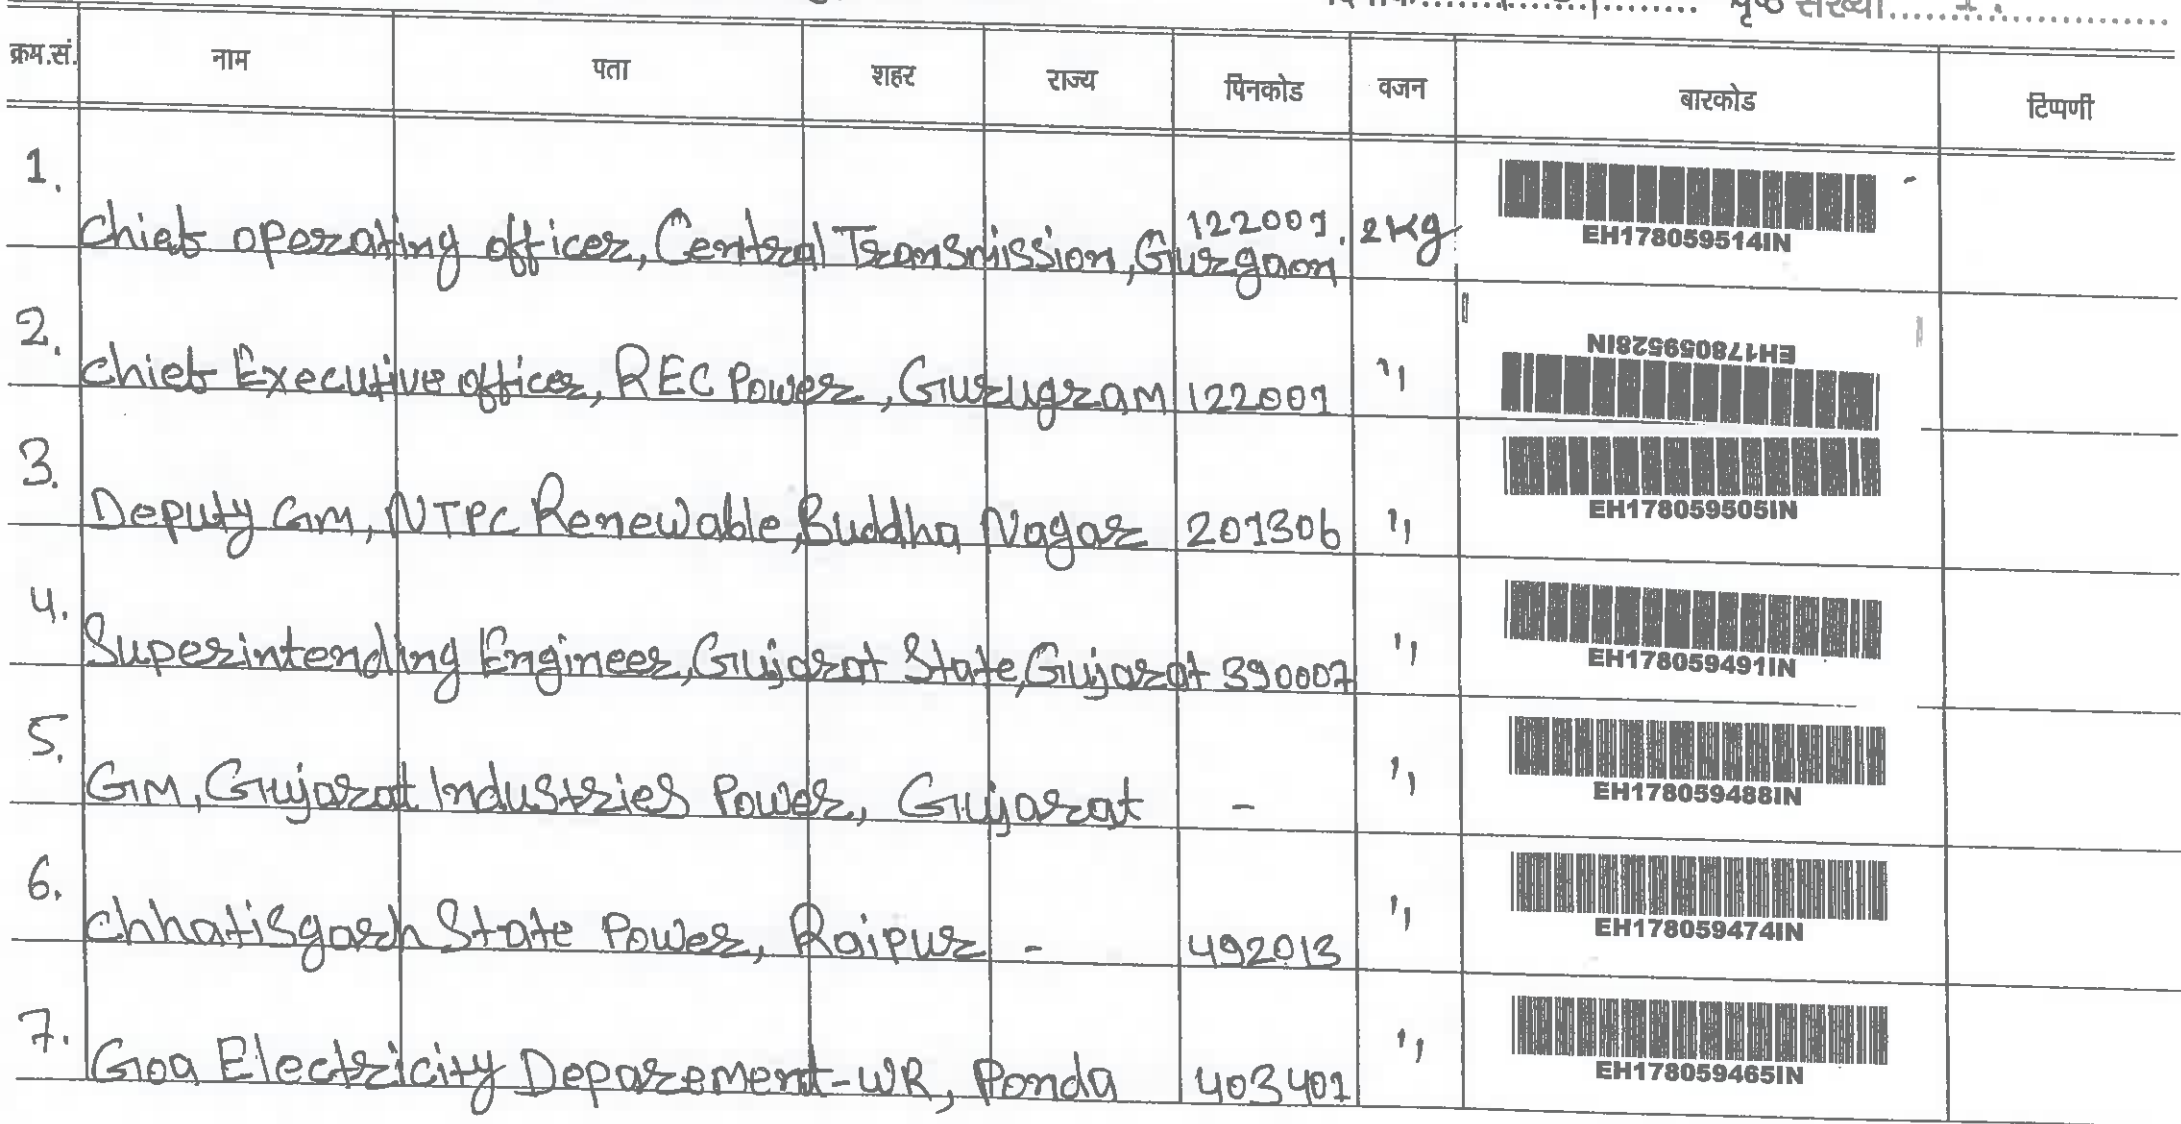 पृष्ठ संख्या
क्रम.सं. नाम पता शहर राज्य पिनकोड वजन बारकोड टिप्पणी
1. Chief operating officer, Central Transmission, Gurgaon 122001. 2Kg EH178059514IN
2. Chief Executive officer, REC Power, Gurugram 122001 " EH178059528IN
3. Deputy GM, NTPC Renewable, Buddha Nagar 201306 " EH178059505IN
4. Superintending Engineer, Gujarat State, Gujarat 390007 " EH178059491IN
5. GM, Gujarat Industries Power, Gujarat - " EH178059488IN
6. Chhatisgarh State Power, Raipur - 492013 " EH178059474IN
7. Goa Electricity Deparement-WR, Ponda 403401 " EH178059465IN